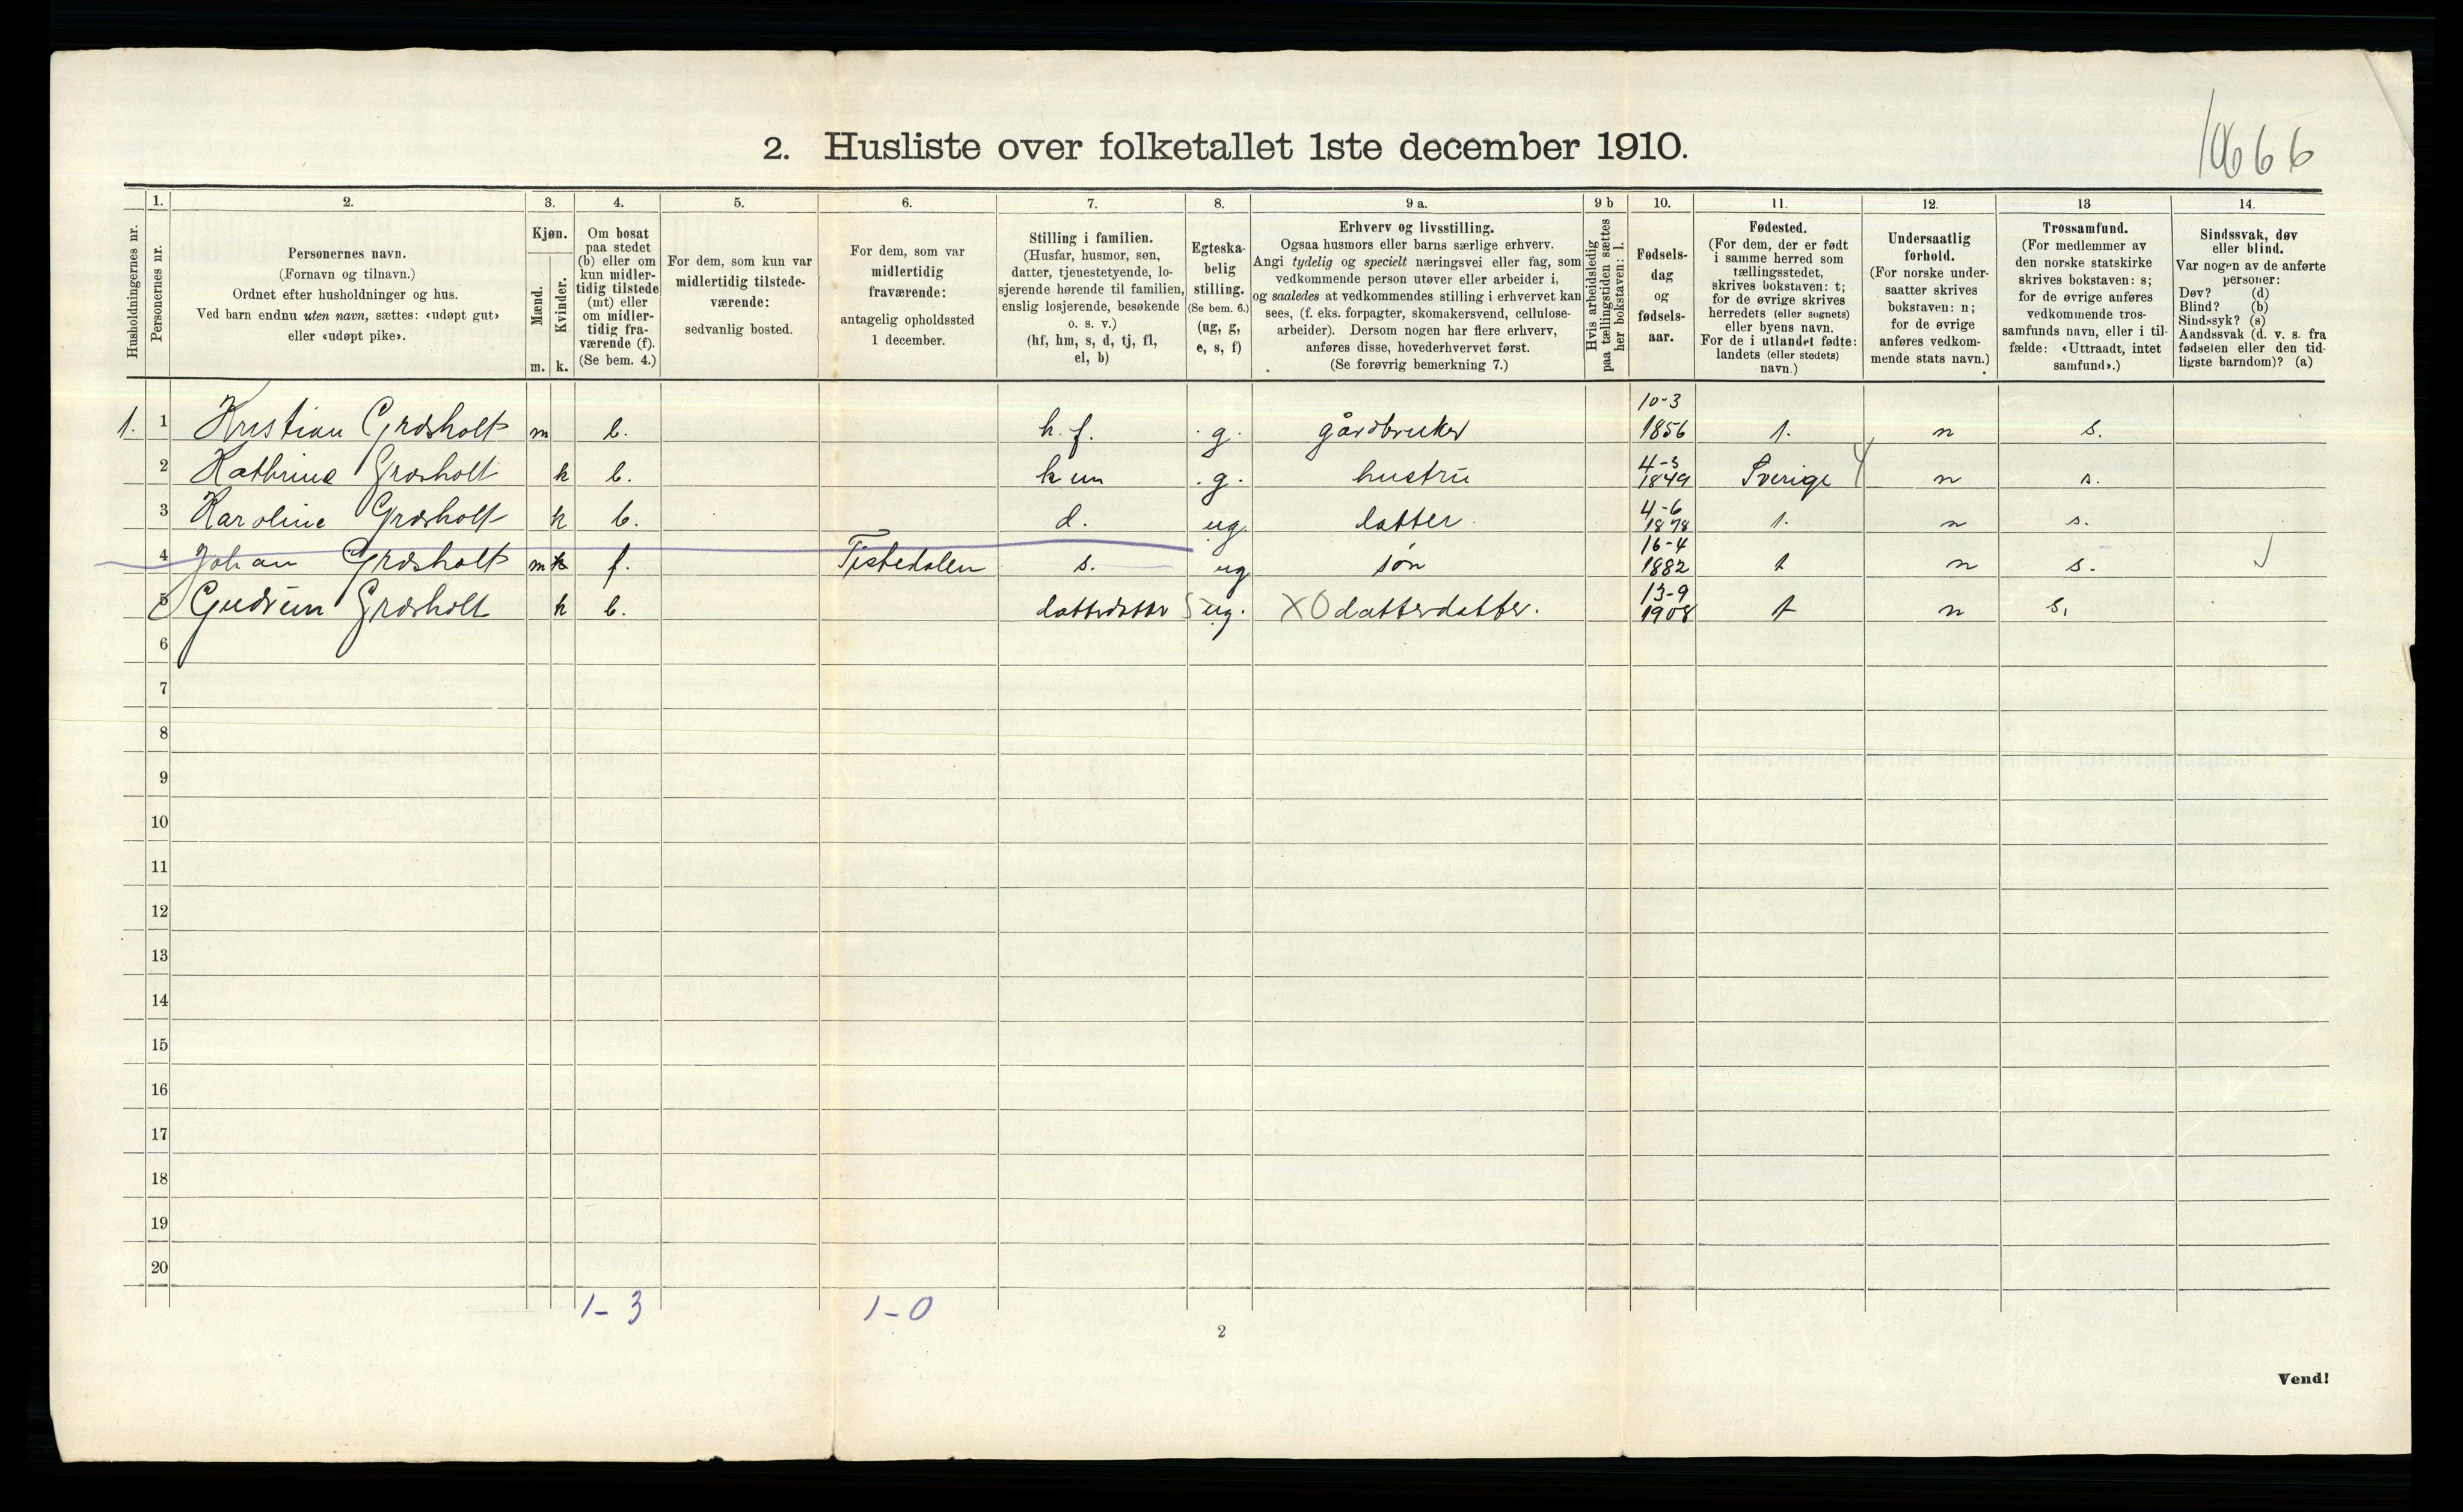 1666
2. Husliste over folketallet 1ste december 1910.
Husholdningernes nr.
1.
Personernes nr.
2.
Personernes navn.
(Fornavn og tilnavn.)
Ordnet efter husholdninger og hus.
Ved barn endnu uten navn, sættes: «udøpt gut»
eller «udøpt pike».
3.
Kjøn.
Mænd.
Kvinder.
m. k.
4.
Om bosat
paa stedet
(b) eller om
kun midler-
tidig tilstede
(mt) eller
om midler-
tidig fra-
værende (f).
(Se bem. 4.)
5.
For dem, som kun var
midlertidig tilstede-
værende:
sedvanlig bosted.
6.
For dem, som var
midlertidig
fraværende:
antagelig opholdssted
1 december.
7.
Stilling i familien.
(Husfar, husmor, søn,
datter, tjenestetyende, lo-
sjerende hørende til familien,
enslig losjerende, besøkende
o. s. v.)
(hf, hm, s, d, tj, fl,
el, b)
8.
Egteska-
belig
stilling.
(Se bem. 6.)
(ug, g,
e, s, f)
9 a.
Erhverv og livsstilling.
Ogsaa husmors eller barns særlige erhverv.
Angi tydelig og specielt næringsvei eller fag, som
vedkommende person utøver eller arbeider i,
og saaledes at vedkommendes stilling i erhvervet kan
sees, (f. eks. forpagter, skomakersvend, cellulose-
arbeider). Dersom nogen har flere erhverv,
anføres disse, hovederhvervet først.
(Se forøvrig bemerkning 7.)
9 b
Hvis arbeidsledig
paa tællingstiden sættes
her bokstaven: l.
10.
Fødsels-
dag
og
fødsels-
aar.
11.
Fødested.
(For dem, der er født
i samme herred som
tællingsstedet,
skrives bokstaven: t;
for de øvrige skrives
herredets (eller sognets)
eller byens navn.
For de i utlandet fødte:
landets (eller stedets)
navn.)
12.
Undersaatlig
forhold.
(For norske under-
saatter skrives
bokstaven: n;
for de øvrige
anføres vedkom-
mende stats navn.)
13
Trossamfund.
(For medlemmer av
den norske statskirke
skrives bokstaven: s;
for de øvrige anføres
vedkommende tros-
samfunds navn, eller i til-
fælde: «Uttraadt, intet
samfund».)
14.
Sindssvak, døv
eller blind.
Var nogen av de anførte
personer:
Døv? (d)
Blind? (b)
Sindssyk? (s)
Aandssvak (d. v. s. fra
fødselen eller den tid-
ligste barndom)? (a)
1. 1 Kristian Græsholt m b. h. f. g. gårdbruker 10-3 1856 t. n s.
2 Kathrine Græsholt k b. h um g. hustru 4-3 1849 Sverige n s.
3 Karoline Græsholt k b. d. ug. datter 4-6 1878 t. n s.
4 Johan Græsholt m k f. Tistedalen s. ug søn 16-4 1882 t n s.
5 Gudrun Græsholt k b. datterdatter ug. XO datterdatter. 13-9 1908 t n s.
6
7
8
9
10
11
12
13
14
15
16
17
18
19
20
1-3 1-0
2
Vend!